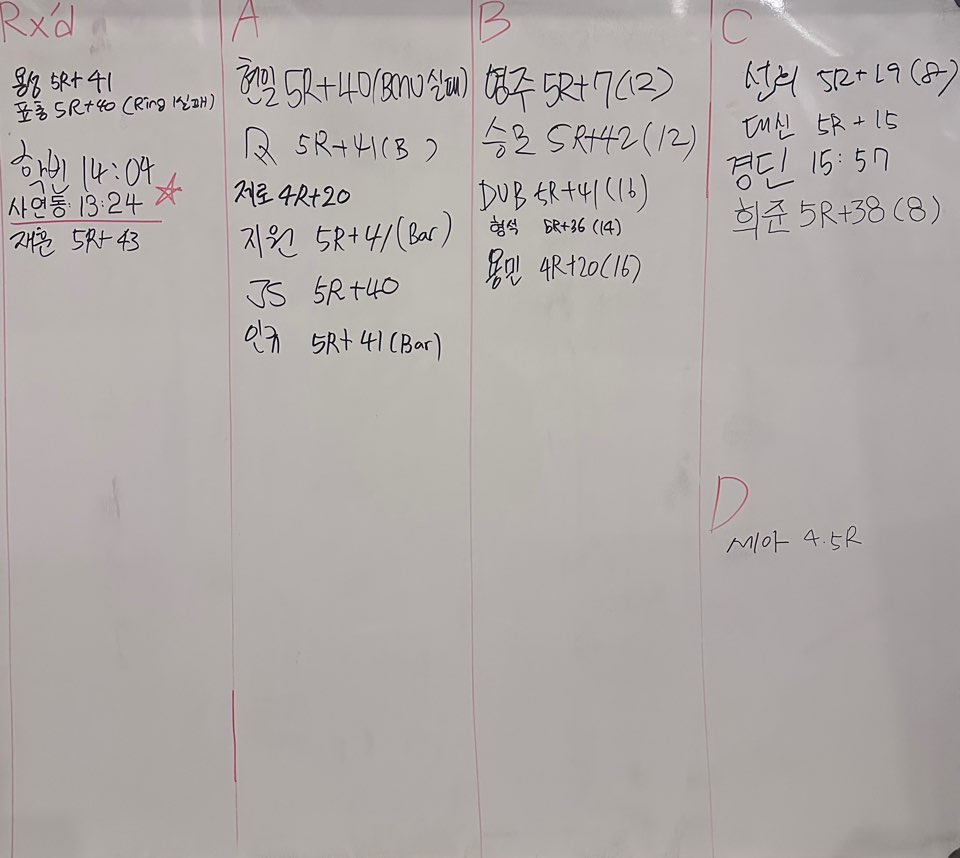 Rx'd
용성 5R+41
포홍 5R+40 (Ring 1실패)
학빈 14:04
사연동: 13:24
재훈 5R+43
A
현일 5R+40 (BMU 실패)
5R+41 (B )
제로 4R+20
지원 5R+41 (Bar)
JS 5R+40
인규 5R+41 (Bar)
B
명주 5R+7 (12)
승모 5R+42 (12)
DUB 5R+41 (16)
형석 5R+36 (14)
용민 4R+20 (16)
C
선희 5R+19 (8)
대신 5R+15
경딘 15:57
희준 5R+38 (8)
D
세아 4.5R